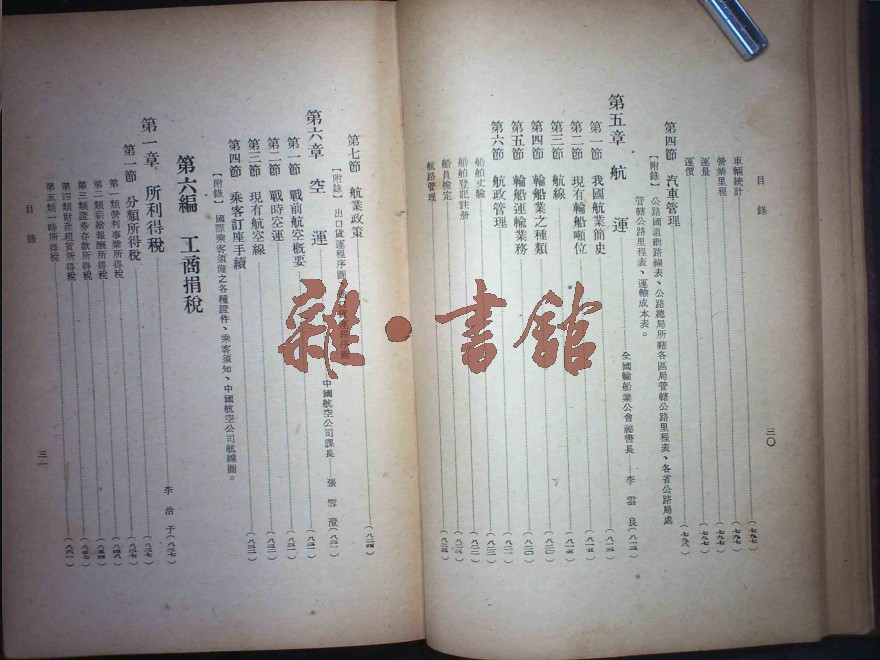 目錄
三〇
車輛統計……(七九七)
營業里程……(七九七)
運量……(七九七)
運價……(七九八)
第四節 汽車管理
【附錄】公路國道網路線表、公路總局所轄各區局管轄公路里程表、各省公路局處
管轄公路里程表、運輸成本表。
第五章 航運……全國輪船業公會祕書長 李雲良(八一五)
第一節 我國航業簡史……(八一五)
第二節 現有輪船噸位……(八一五)
第三節 航線……(八一五)
第四節 輪船業之種類……(八二〇)
第五節 輪船運輸業務……(八二一)
第六節 航政管理……(八二三)
船舶丈驗
船舶登記註冊
船員檢定
航路管理
第七節 航業政策……(八二四)
【附錄】出口貨運程序圖
第六章 空運……中國航空公司課長 張雪澄(八三一)
第一節 戰前航空概要……(八三一)
第二節 戰時空運……(八三一)
第三節 現有航空線……(八三二)
第四節 乘客訂座手續……(八三二)
【附錄】國際乘客須備之各種證件、乘客須知、中國航空公司航線圖。
第六編 工商捐稅
第一章 所利得稅……李治子(八三七)
第一節 分類所得稅……(八三七)
第一類營利事業所得稅……(八四八)
第二類薪給報酬所得稅……(八五四)
第三類證券存款所得稅……(八五七)
第四類財產租賃所得稅
第五類一時所得稅……(八六一)
目錄
三一
雜·書館